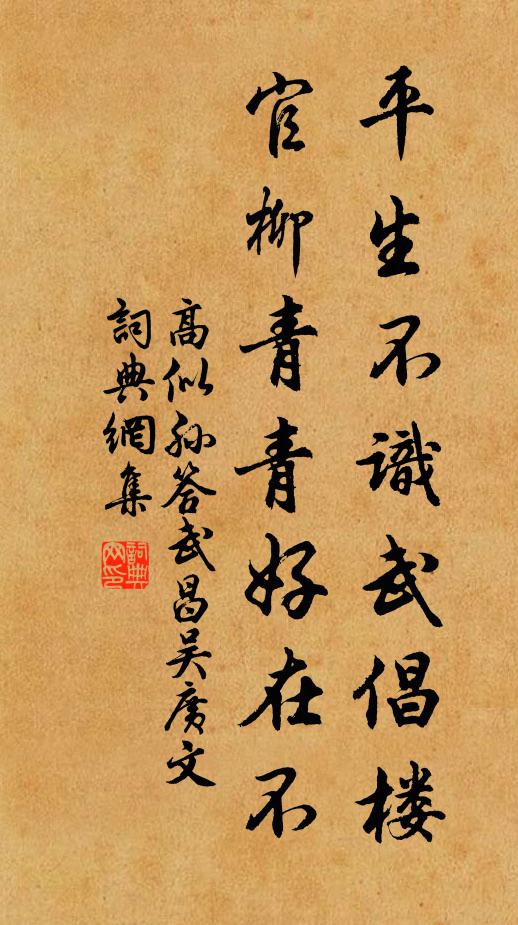 平生不識武倡楼
官柳青青好在不
高似孙答武昌吴广文
詞典網集
詞典网印